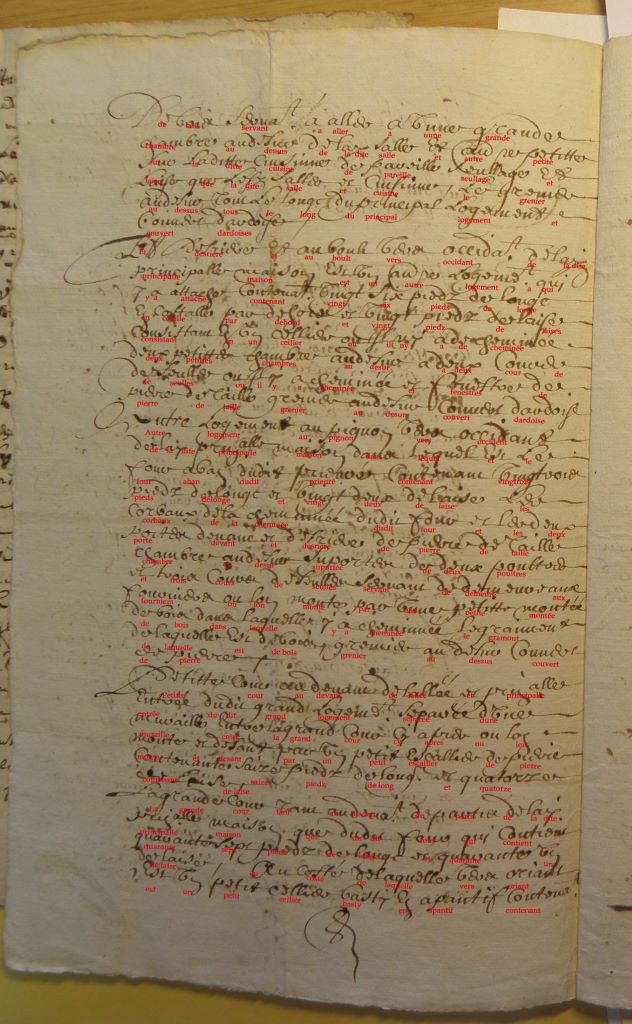 de bois servant a aller a une grande
chambre au dessus de la dite salle et autre petite
sur la dite cuisine de pareille seulage et
laise que les dite salle et cuisine le grenier
au dessus tous le long du principal logement et
couvert dardoises
et desriere et au boult vers occidant de la dite
principalle maison est un autre logement qui
y a attaché contenant vingt six piedz de longe
en la salle par debort et vingt piedz de laises
consistant en un cellier ou il ny a de cheminée
deux petites chambres au desur a deux cour de
de seulles ou il y a cheminée et fenestres de
pierre de taille grenier au desus convert dardoise
Autre logement au pignon vers occident
de la dite principalle maison dans lequel est le
four aban dudit prieuré contenant vingtrois
pieds delonge et vingt deux de laise les
corbaux de la cheminée dudit four et les deux
porte devant et desriere de pierre de taille
chambre au desus suportée de deux poultres
et trois couvez de seulles servant de demeure aux
fourniers ou lon monte par une petite montée
de bois dans laquelle y a cheminée le grament
de laquelle est de bois grenier au dessus couvert
de pierre
Petite cour au devant de lallée et principalle
entrée du dit grand logement separée dune
muraille entre la grand cour cy apres ou lon
monte et desant par un petit escallier de pierre
contenant saize piedz de long et quatorze
de laise
La grande cour tant au devant despartie de la dite
principalle maison que du dit four qui contient
quarante sept piedz de longe et quarante un
de laise / Au costé de laquelle vers oriant
est un petit cellier basty en apantif contenant